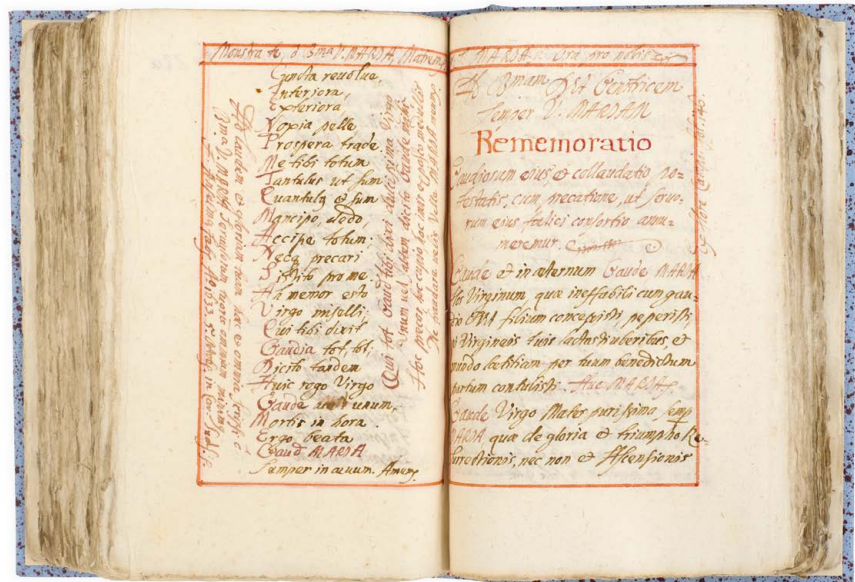 Monstra te, o Sma V. MARIA, Matrem
Cuncta revolve,
Interiora,
Exteriora
Noxia pelle
Prospera trade
Me tibi totum
Tantulus ut sum
Quantulus & sum
Mancipo, dedo,
Accipe totum;
Neca precari
Sistito pro me,
Ah memor esto
Virgo miselli,
Qui tibi dixit
Gaudia tot, tot;
Dicito tandem
Huic rogo Virgo
Gaude unum,
Mortis in hora.
Ergo beata
Gaud MARIA
Semper in aevum. Amen.
Qui tot Gaud tibi dixi pia Virgo
Unum vel saltem dicito Gaude mihi.
MARIA: Ora pro nobis
Ad Genitricem
semper V. MARIAM
Rememoratio
Gaudiorum eius & collaudatio po=
testatis, cum precatione, ut servo=
rum eius felici consortio annu=
meremur.
Gaude et in aeternum Gaude MARIA
flos Virginum, quae ineffabili cum gau=
dio DEI filium concepisti, peperisti,
ac Virgineis tuis lactasti uberibus, et
mundo laetitiam per tuum benedictum
partum contulisti. Ave MARIA
Gaude Virgo Mater purissima semp
MARIA quae de gloria & triumpho Re-
surrectionis, nec non et Ascensionis